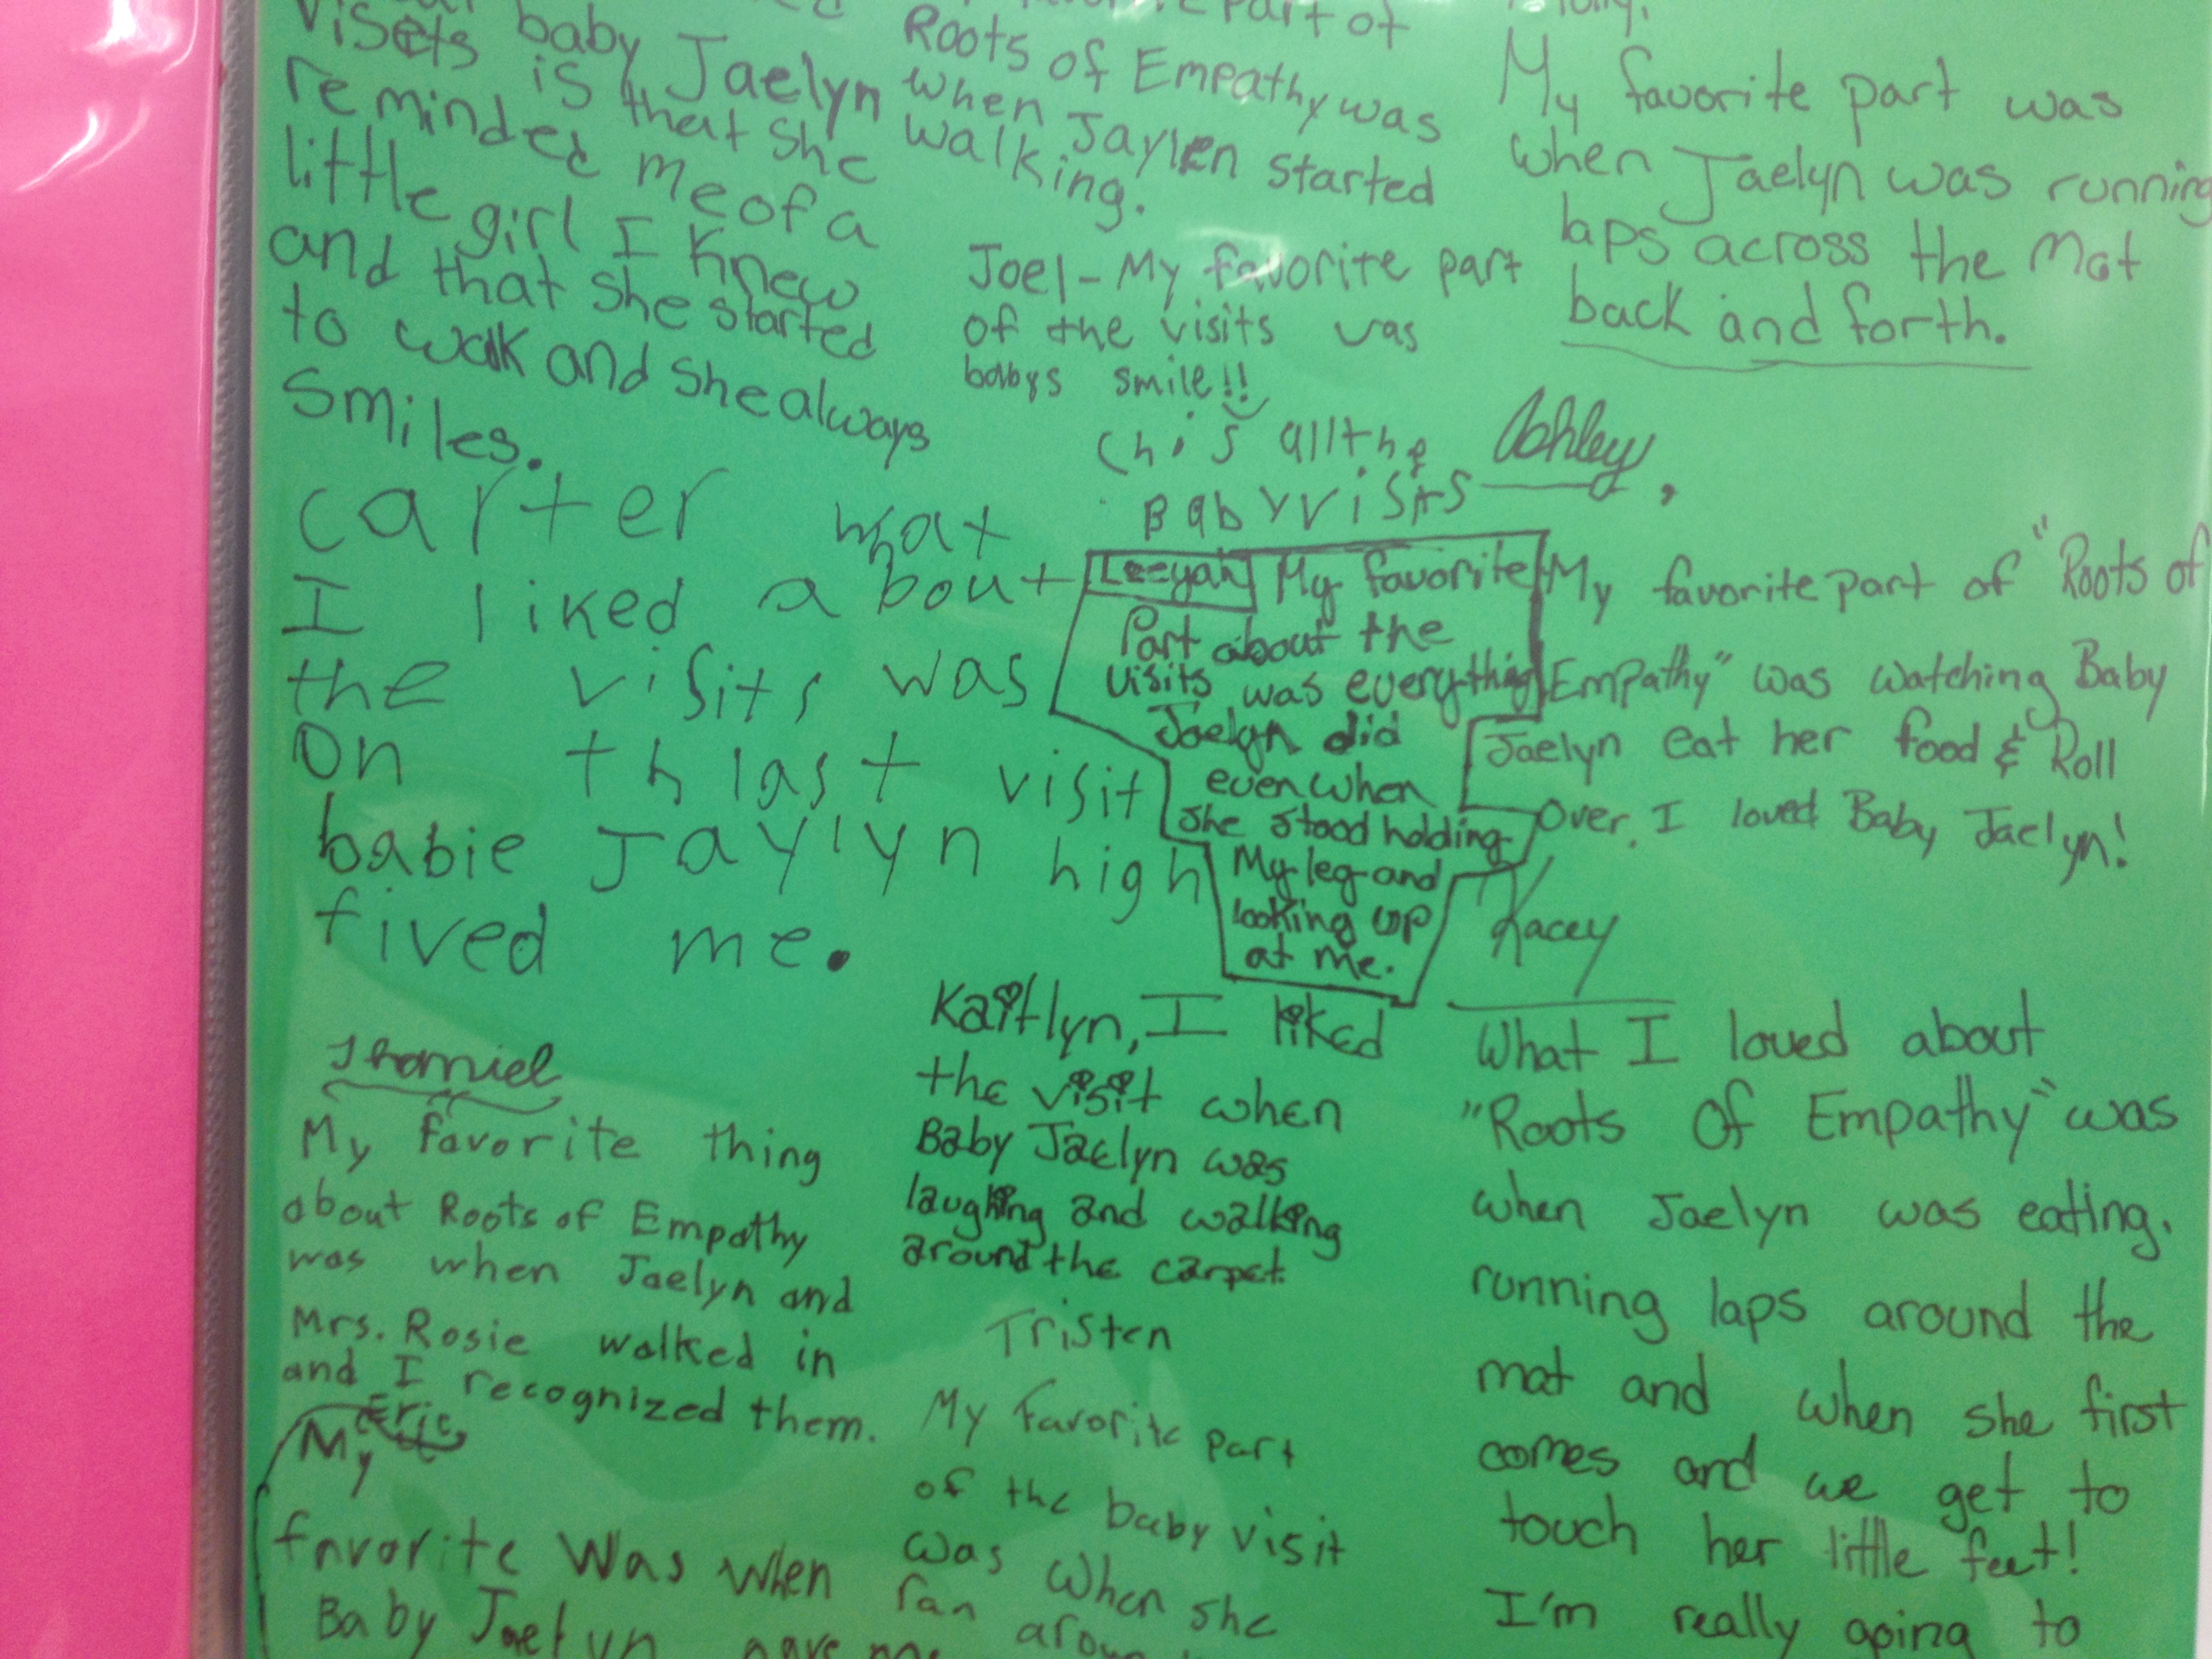 Part of
visets baby Jaelyn
is that she
reminded me of a
little girl I knew
and that she started
to walk and she always
smiles.
carter what
I liked about
the visits was
On th last visit
babie Jaylyn high
fived me.
Thamiel
My favorite thing
about Roots of Empathy
was when Jaelyn and
Mrs. Rosie walked in
and I recognized them.
Eric
My
favorite was when
Baby Jaelyn gave me
Roots of Empathy was
when Jaylen started
walking.
Joel - My favorite part
of the visits was
babys smile!!
all the
Baby visits
Leeyah My favorite
Part about the
visits was everything
Jaelyn did
even when
she stood holding
My leg and
looking up
at me.
Kaitlyn, I liked
the visit when
Baby Jaelyn was
laughing and walking
around the carpet
Tristen
My Favorite part
of the baby visit
was when she
ran
My favorite part was
when Jaelyn was running
laps across the Mat
back and forth.
Ashley,
My favorite part of "Roots of
Empathy" was watching Baby
Jaelyn eat her food & Roll
Over. I loved Baby Jaelyn!
Kacey
What I loved about
"Roots Of Empathy" was
when Jaelyn was eating.
running laps around the
mat and when she first
comes and we get to
touch her little feet!
I'm really going to